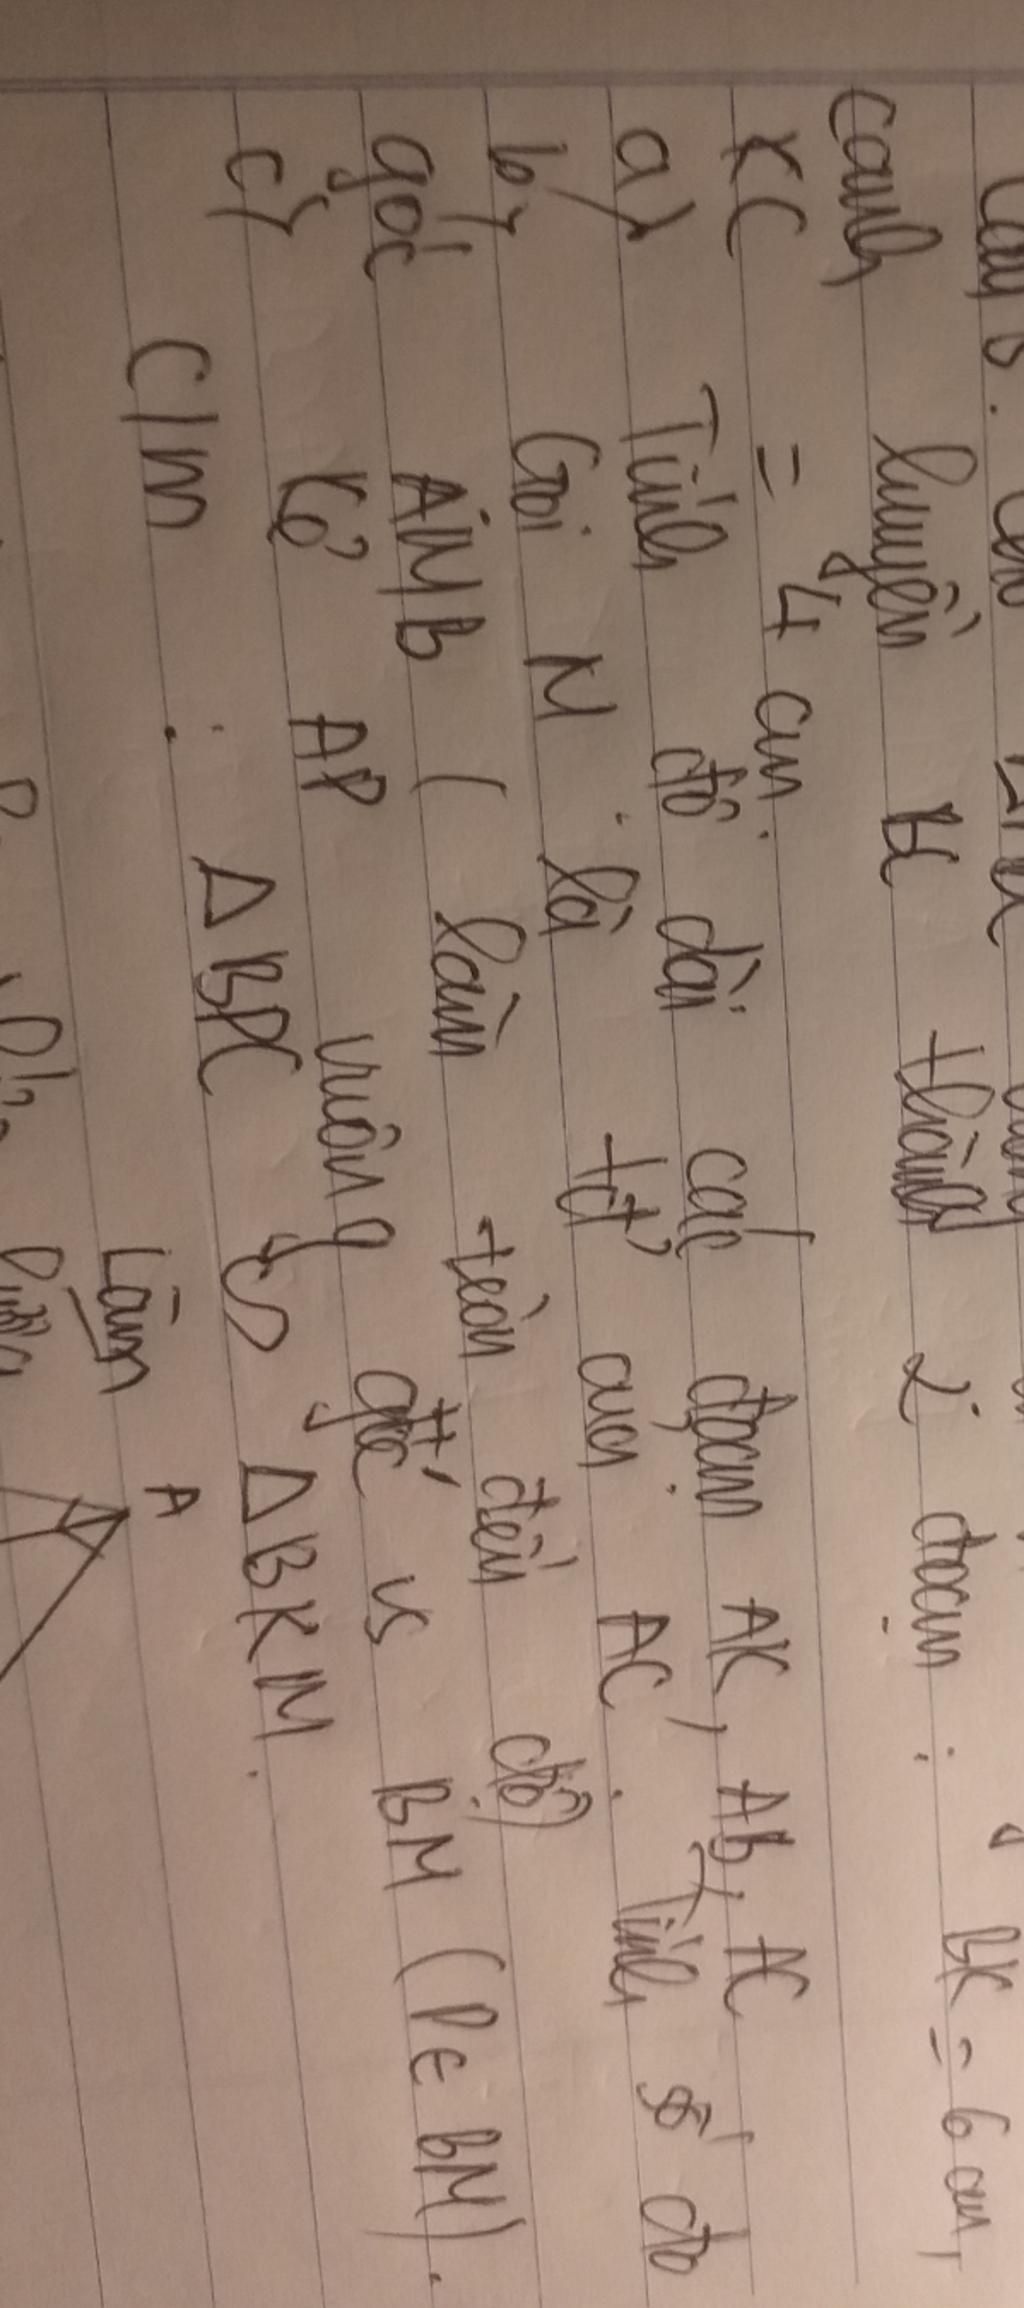 Cho
cạnh huyền BC thành 2 đoạn : BK = 6 cm,
KC = 4 cm.
a) Tính độ dài các đoạn AK, AB, AC
b) Gọi M là tđ của AC. Tính số đo
góc AMB (làm tròn đến độ)
c) Kẻ AP vuông góc vs BM (P ∈ BM).
C/m : Δ BPC ∽ Δ BKM.
Làm
A